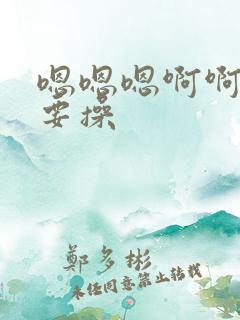 嗯嗯嗯啊啊
要操
鄭多彬
未经同意禁止转载